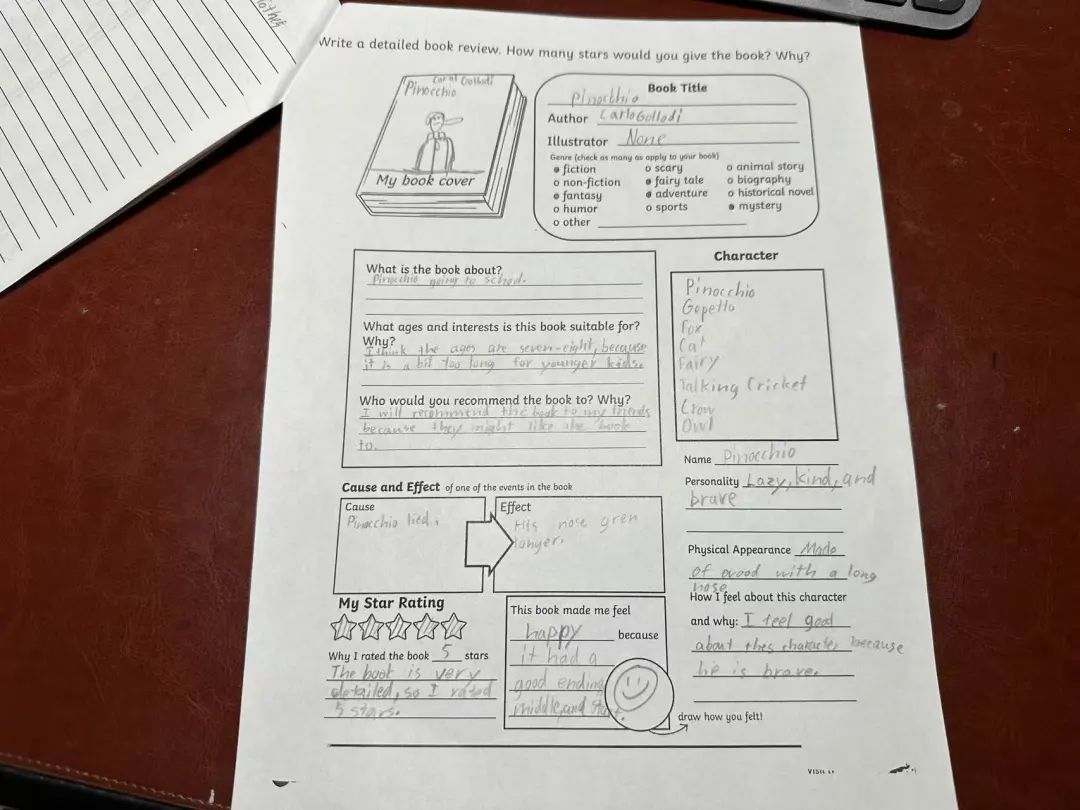 Write a detailed book review. How many stars would you give the book? Why?
Pinocchio
My book cover
Book Title
Pinocchio
Author Carlo Gollodi
Illustrator None
Genre (check as many as apply to your book)
fiction
o non-fiction
fantasy
o humor
o other
o scary
fairy tale
adventure
o sports
o animal story
o biography
o historical novel
mystery
What is the book about?
Pinocchio going to school.
What ages and interests is this book suitable for?
Why?
I think the ages are seven-eight, because
it is a bit too long for younger kids.
Who would you recommend the book to? Why?
I will recommend the book to my friends
because they might like the book
to.
Character
Pinocchio
Gepetto
Fox
Cat
Fairy
Talking Cricket
Crow
Owl
Name Pinocchio
Personality Lazy, kind, and
brave
Physical Appearance Made
of wood with a long
nose
How I feel about this character
and why: I feel good
about this character because
he is brave.
Cause and Effect of one of the events in the book
Cause
Pinocchio lied.
Effect
His nose gren
longer.
My Star Rating
Why I rated the book 5 stars
The book is very
detailed, so I rated
5 stars.
This book made me feel
happy because
it had a
good ending
middle, and start.
draw how you felt!